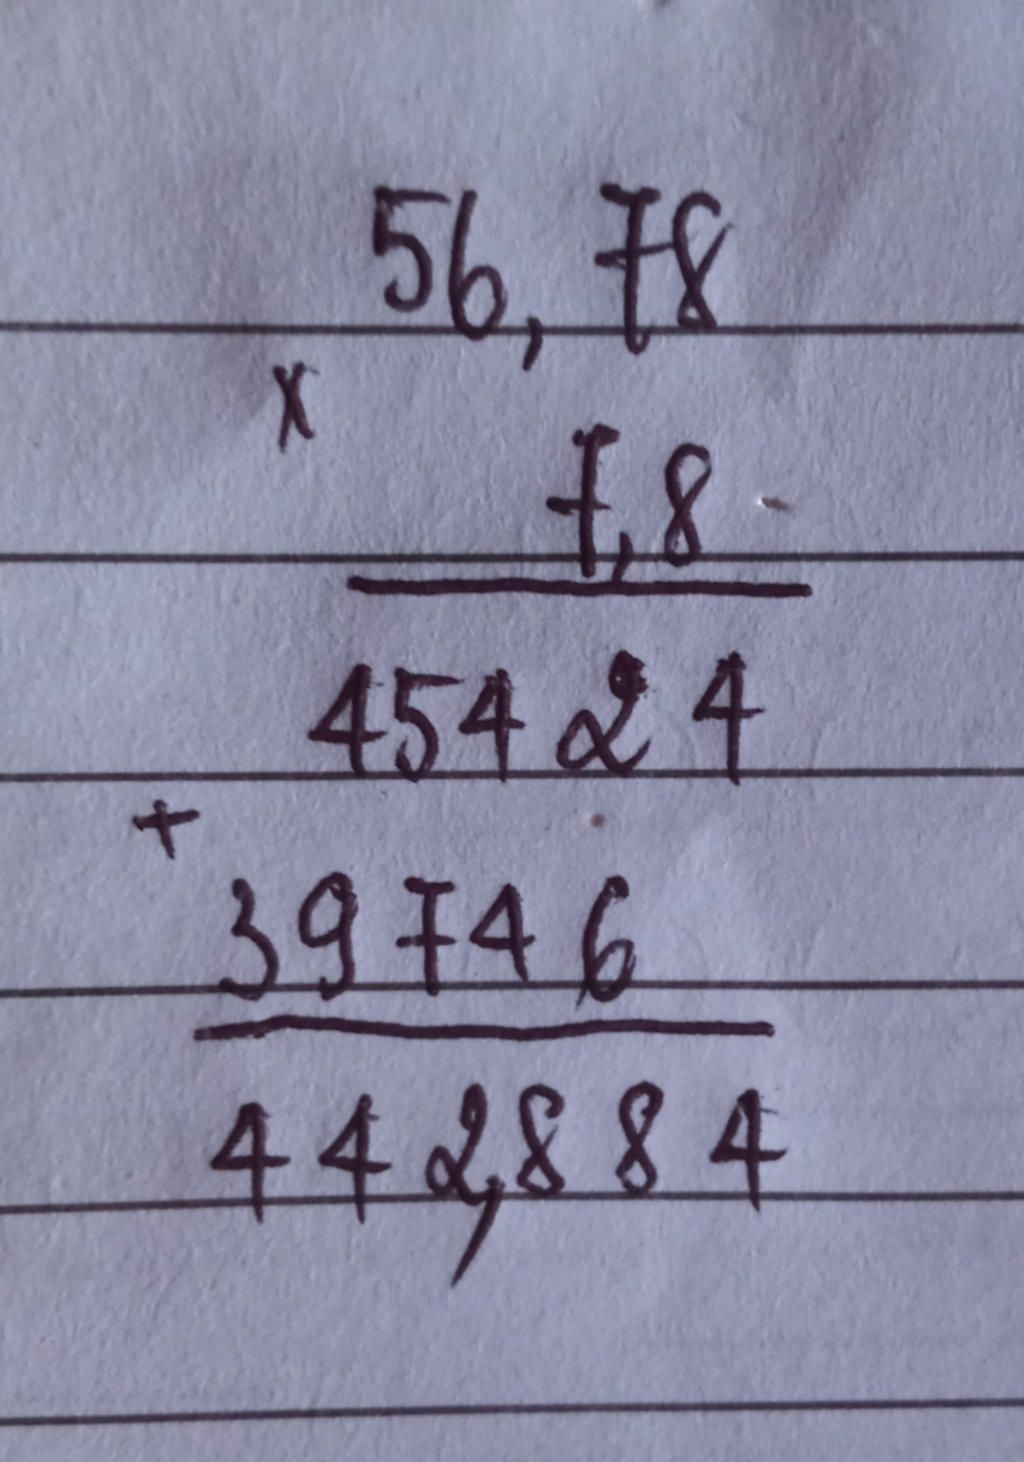 56,78
x
7,8
45424
+
39746
442,884